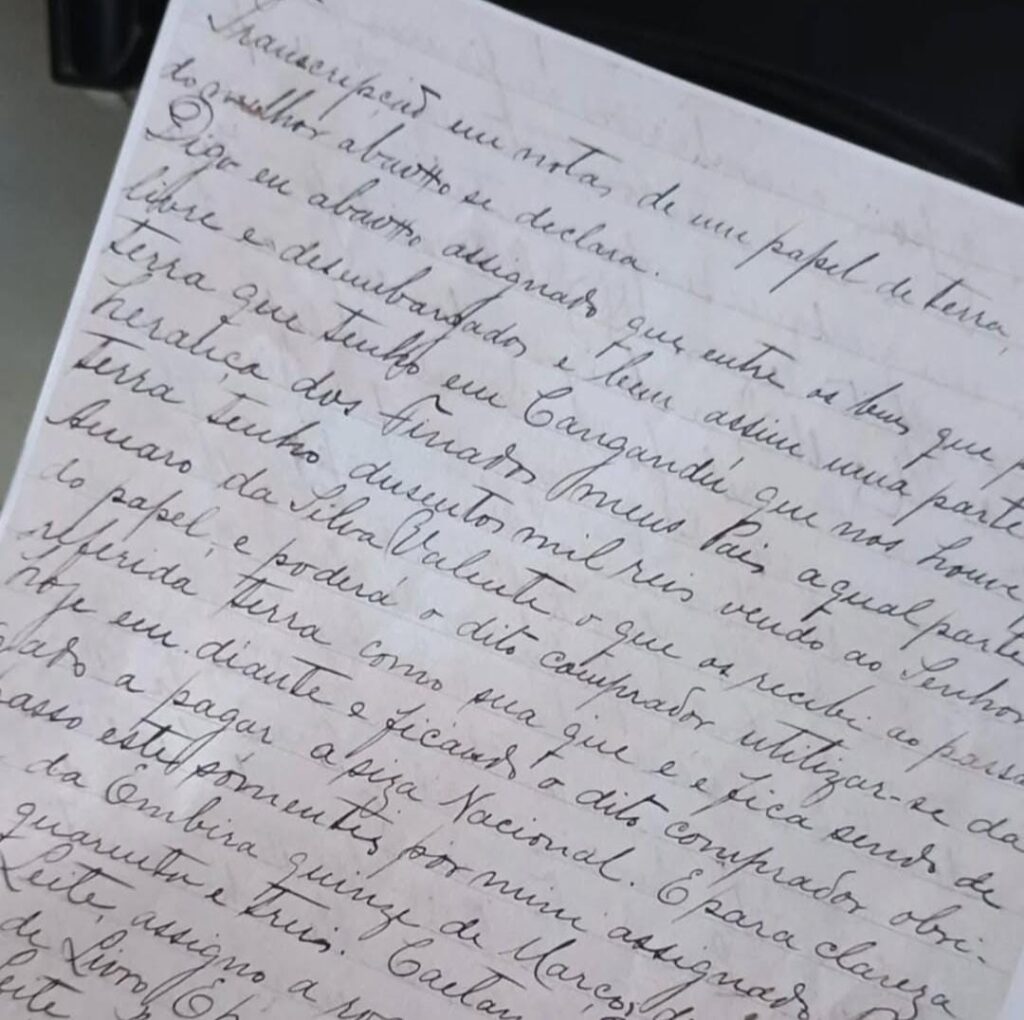 Transcripção em notas de um papel de terra,
do melhor abaixo se declara.
Digo eu abaixo assignado que entre os bens que p
livre e desembargados e bem assim uma parte
terra que tenho em Cangandú que nos houve p
herança dos finados meus Pais, a qual parte
terra tenho dusentos mil reis vendo ao Senhor
Amaro da Silva Valente o que os recebi ao passa
do papel, e poderá o dito comprador utilizar-se da
referida terra como sua que é e fica sendo de
hoje em diante e ficando o dito comprador obri-
gado a pagar a siza Nacional. E para clareza
passo este somente por mim assignado
da Embira quinze de Março, d
quarenta e treis. Caetan
Leite, assigno a ro
de Livro